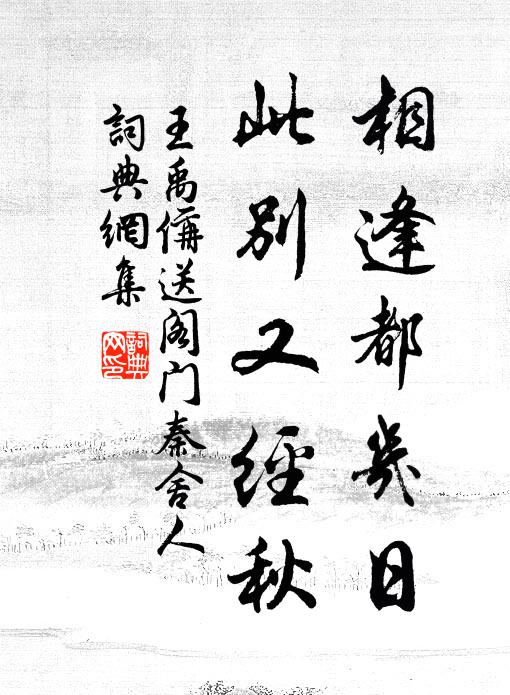 相逢都幾日
此別又經秋
王禹偁送阁门秦舍人
詞典網集
詞典网印